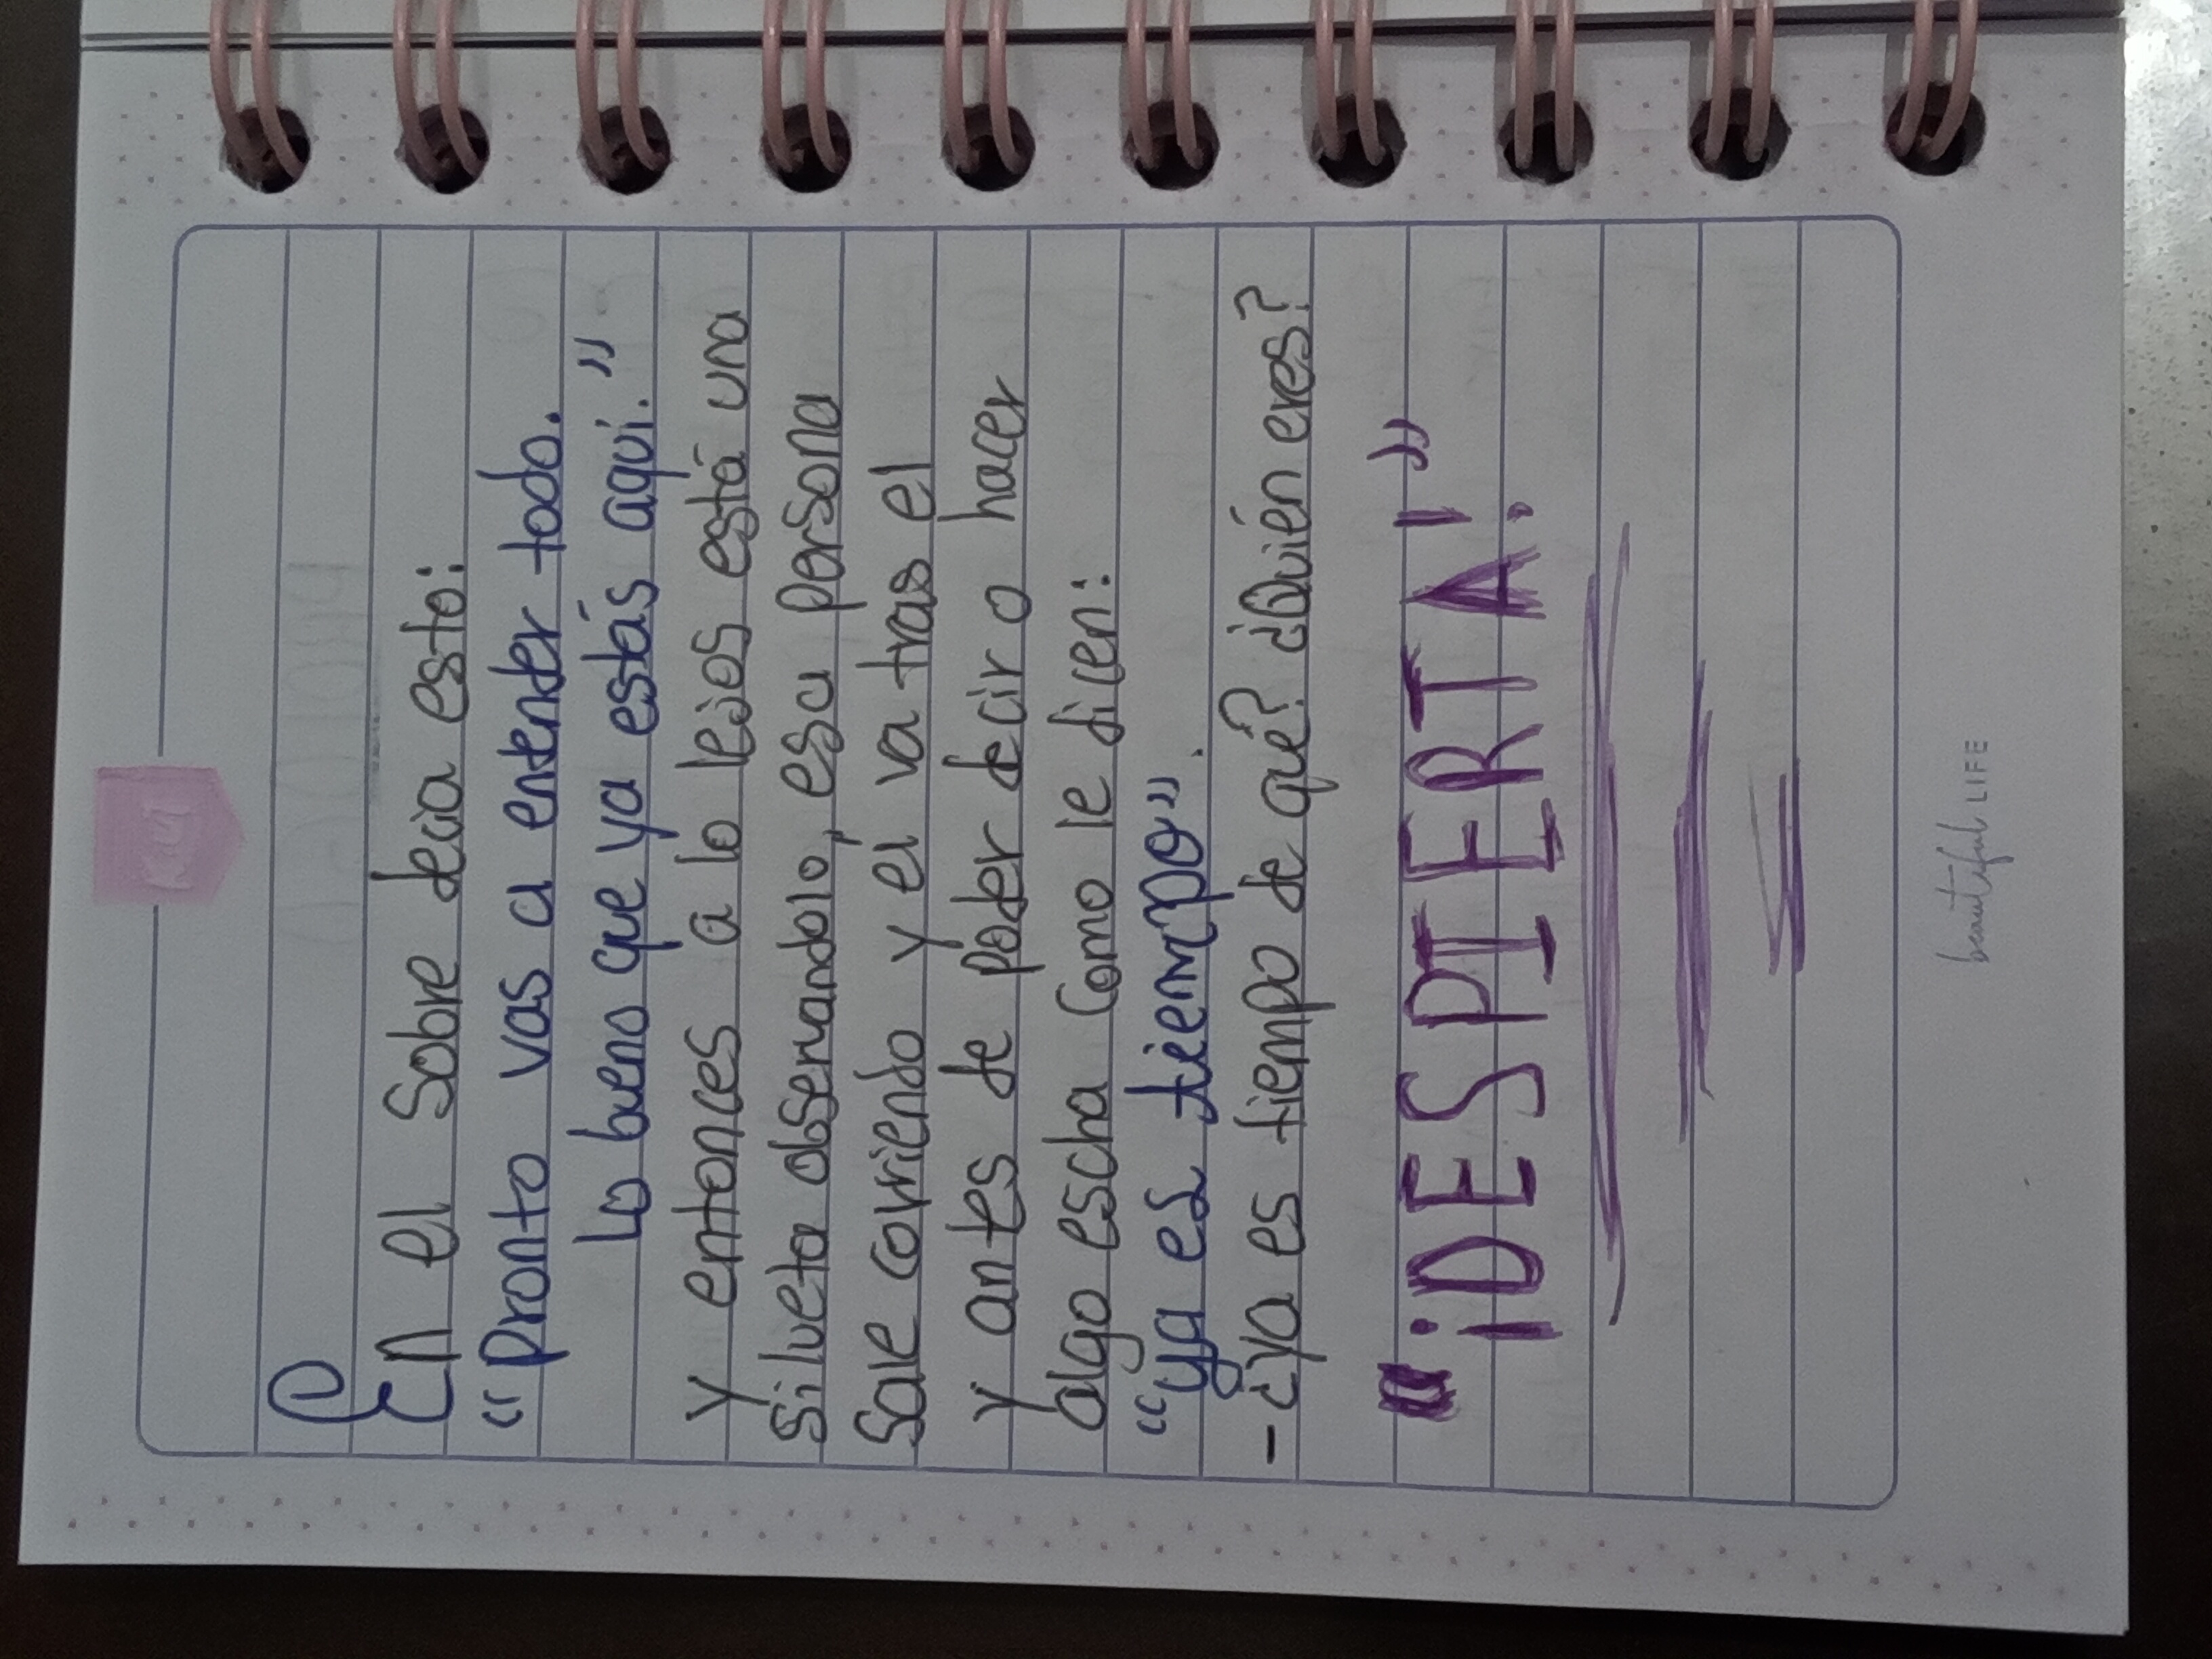 En el Sobre decia esto:
“Pronto vas a entender todo.
Lo bueno que ya estás aquí.”
Y entonces a lo lejos está una
Silueta observandolo, esa persona
Sale corriendo y el va tras el
Y antes de poder decir o hacer
algo esccha Como le dicen:
“ya es tiempo”.
-¿Ya es tiempo de qué? ¿Quién eres?
“¡DESPIERTA!”
beautiful LIFE